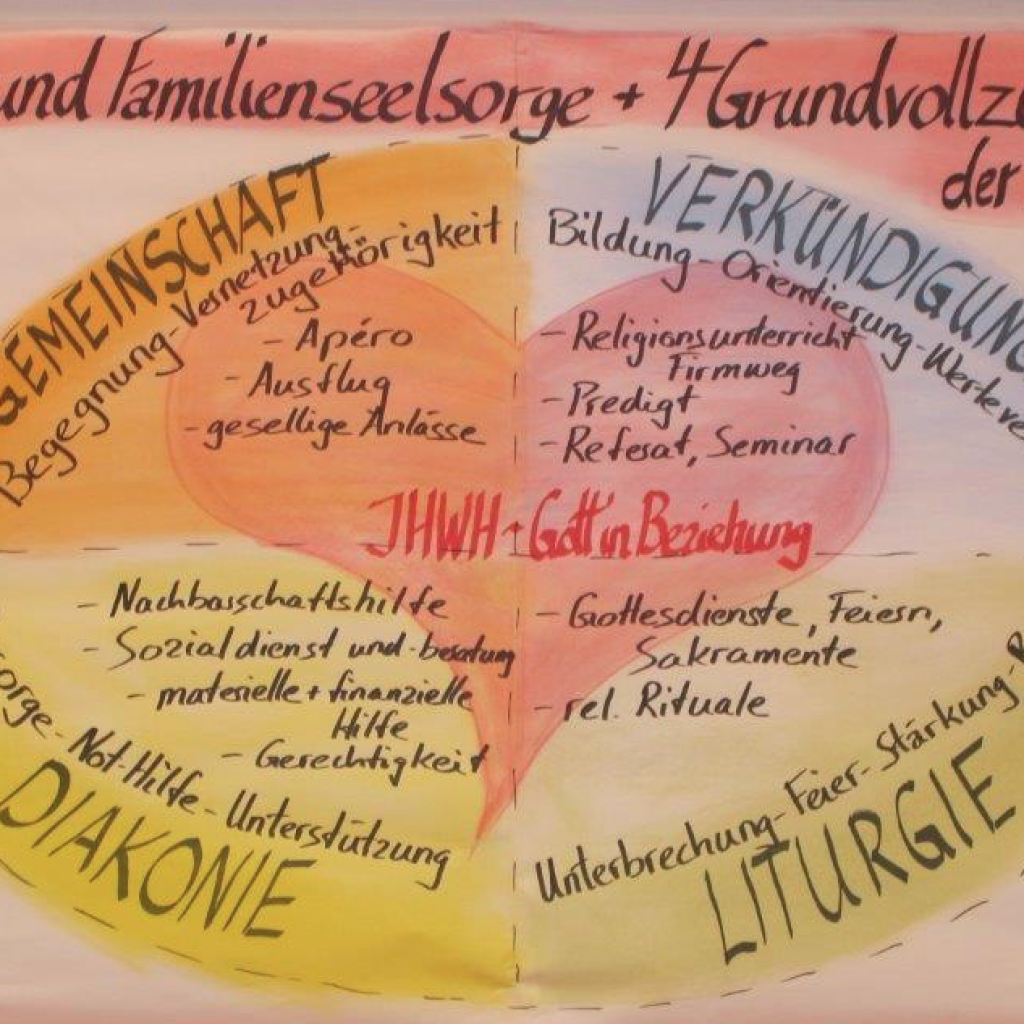 und Familienseelsorge + 4 Grundvollzü
der
GEMEINSCHAFT
Begegnung - Vernetzung -
zugeHörigkeit
- Apéro
- Ausflug
- gesellige Anlässe
VERKÜNDIGUNG
Bildung - Orientierung - Werteve
- Religionsunterricht
Firmweg
- Predigt
- Referat, Seminar
JHWH - Gott in Beziehung
- Nachbarschaftshilfe
- Sozialdienst und -beratung
- materielle + finanzielle
Hilfe
- Gerechtigkeit
orge - Not-Hilfe - Unterstützung
DIAKONIE
- Gottesdienste, Feiern,
Sakramente
- rel. Rituale
Unterbrechung - Feier - Stärkung -
LITURGIE